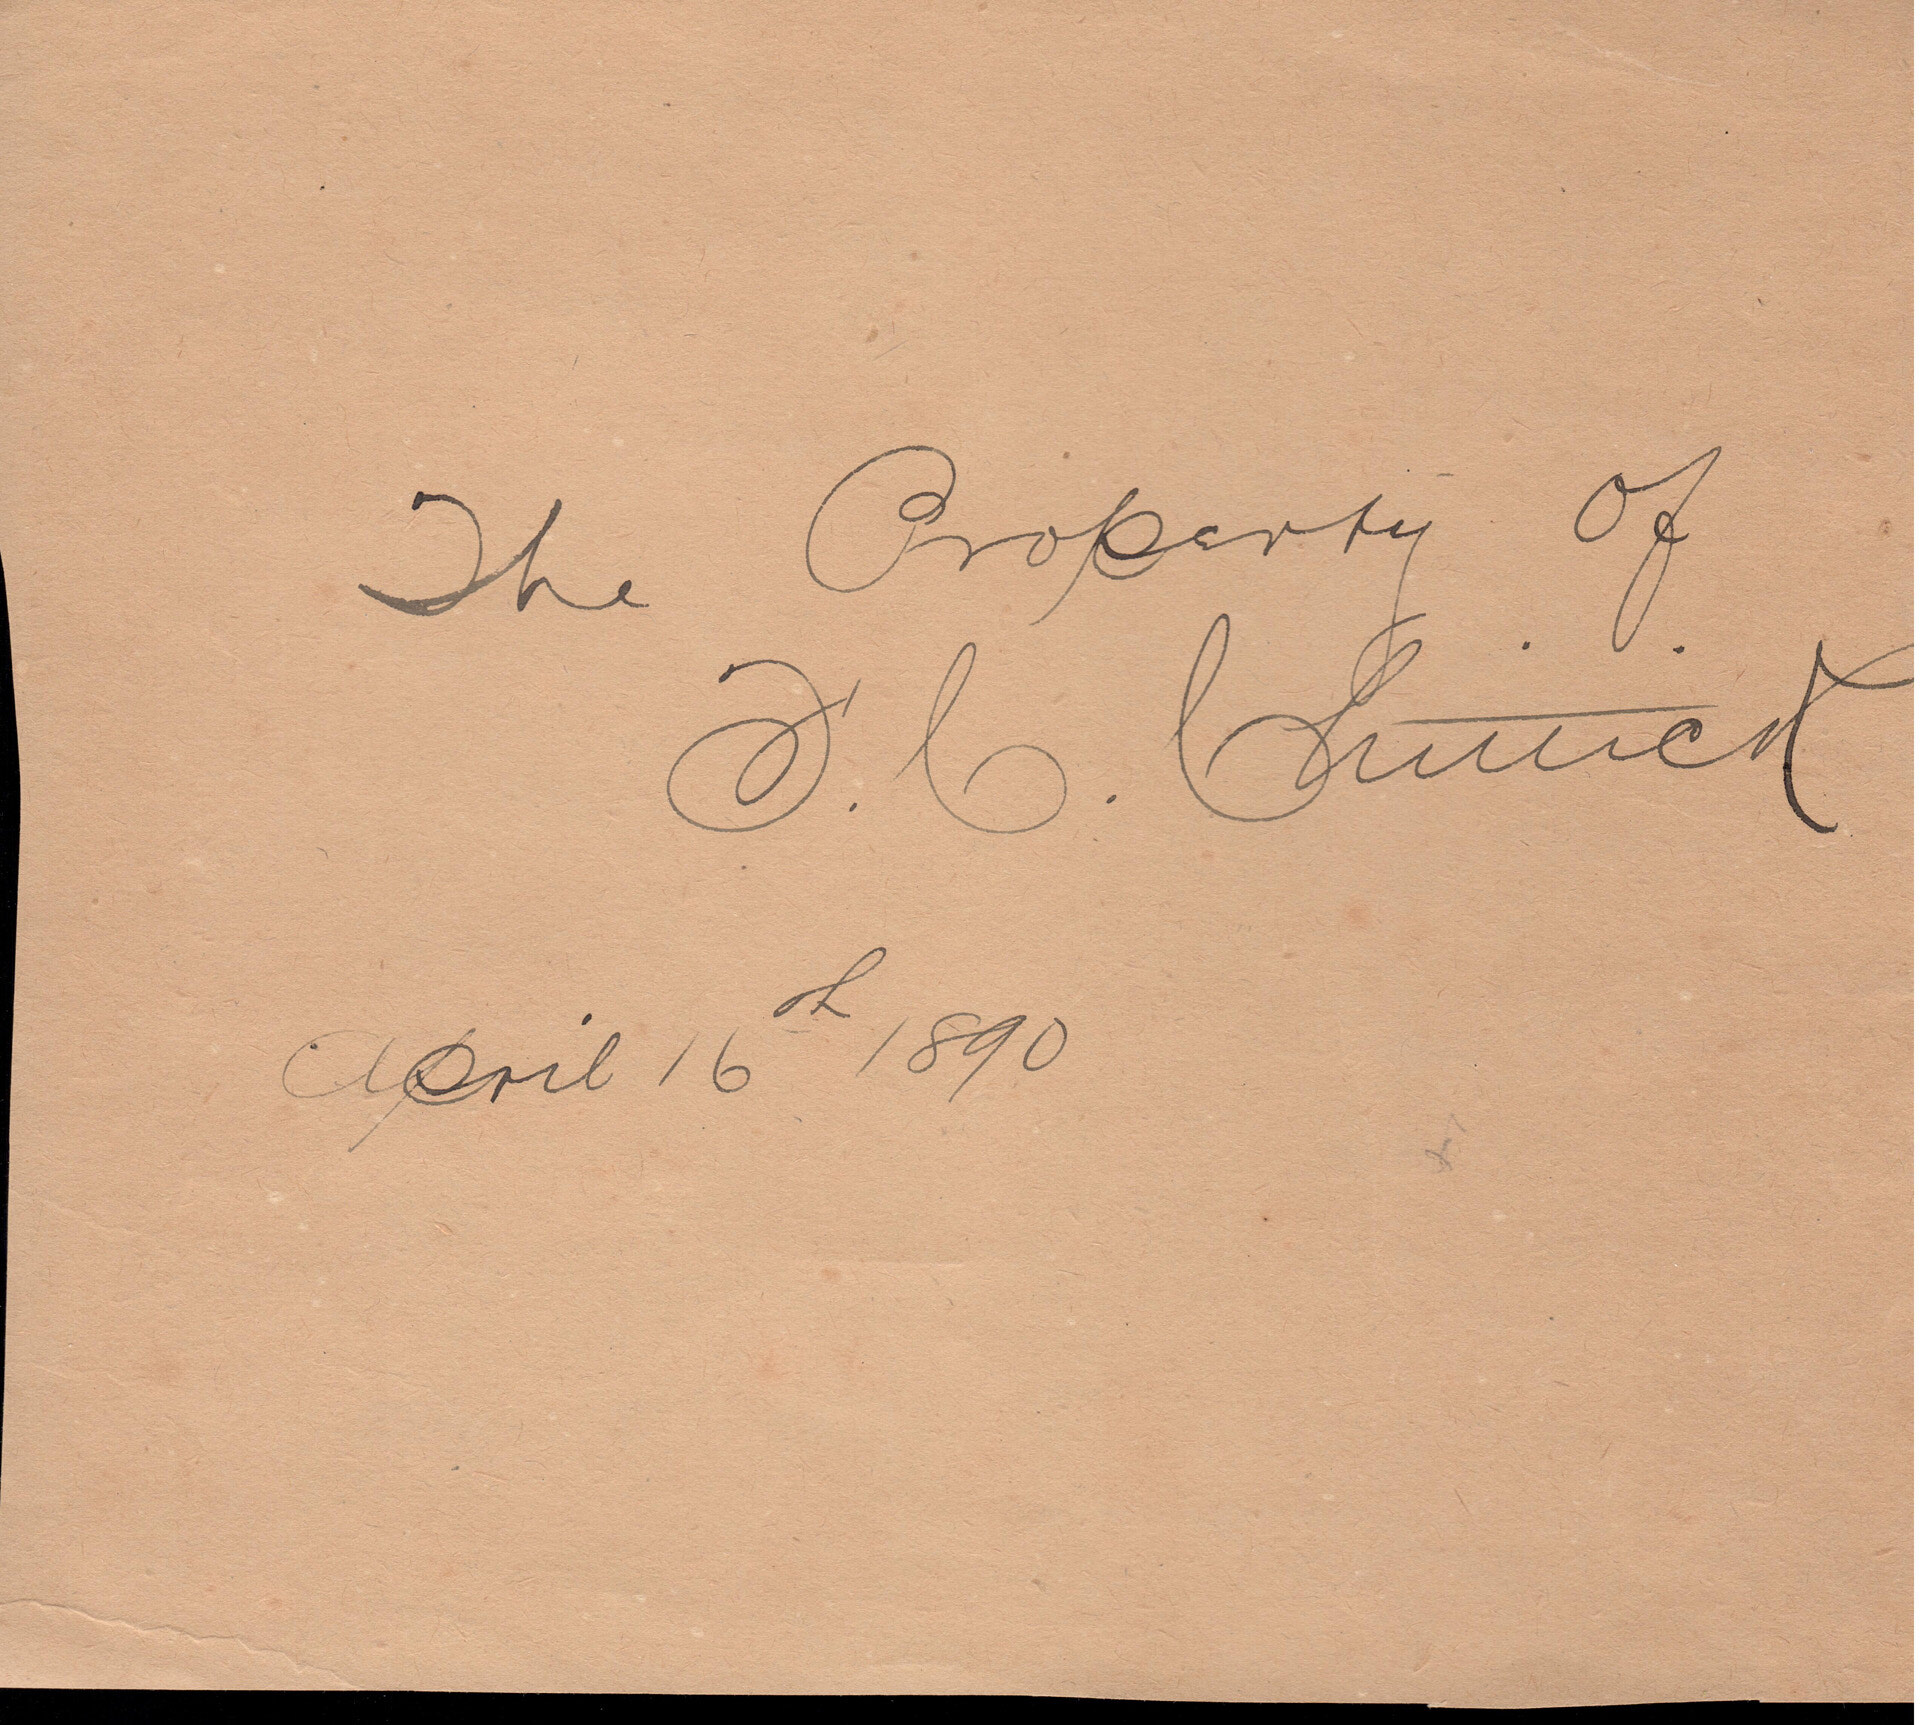 The Property of
F. C. Chittick
April 16th 1890